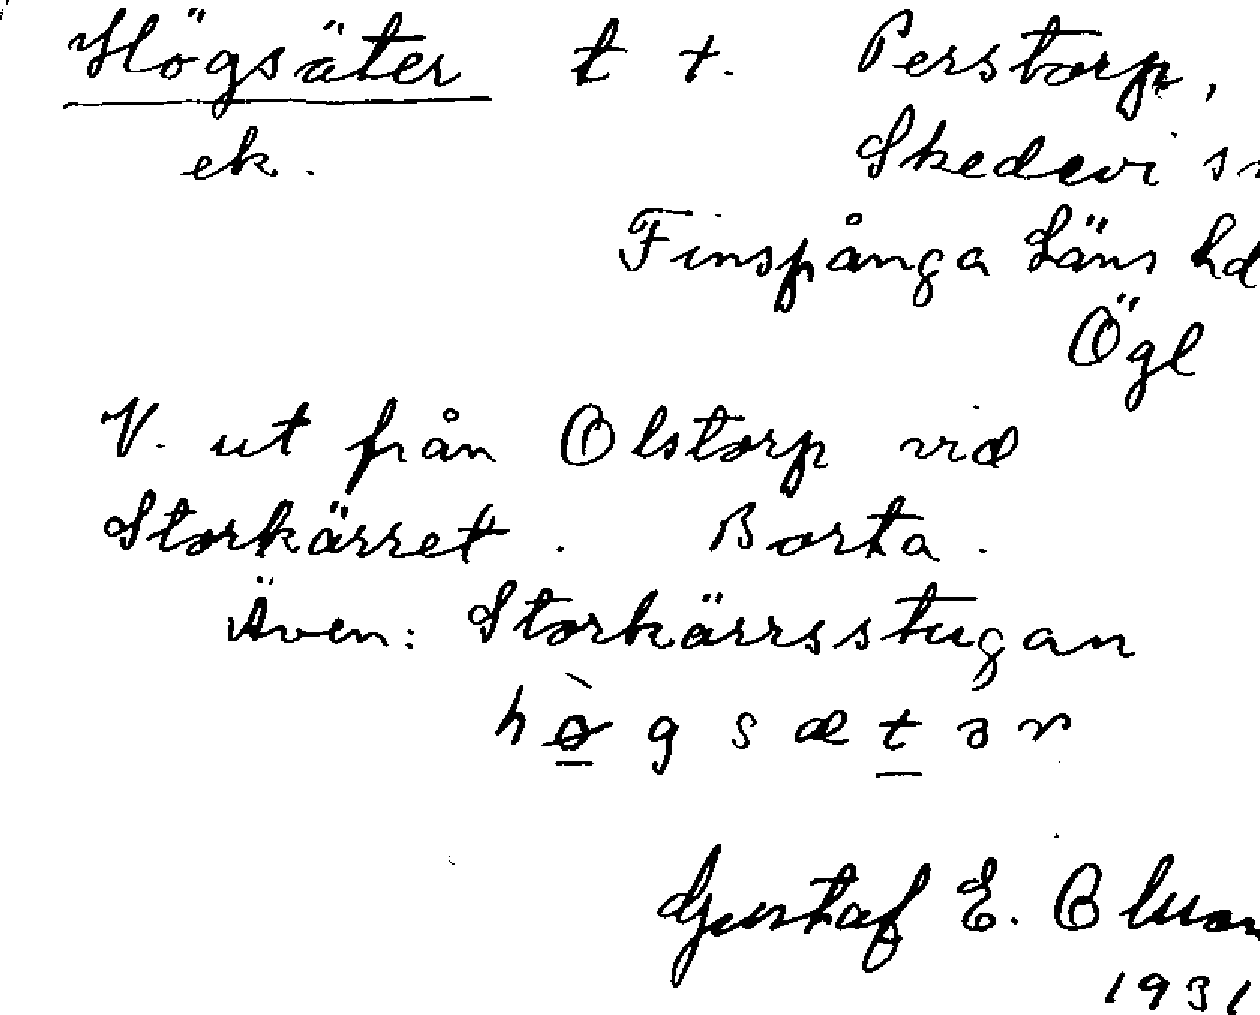 Högsäter t +. Perstorp,
ek. Skedevi
Finspånga Läns hd
Ögl
V. ut från Olstorp vid
Storkärret. Borta.
Även: Storkärrsstugan
hø̀gsætər
Gustaf E.
1931